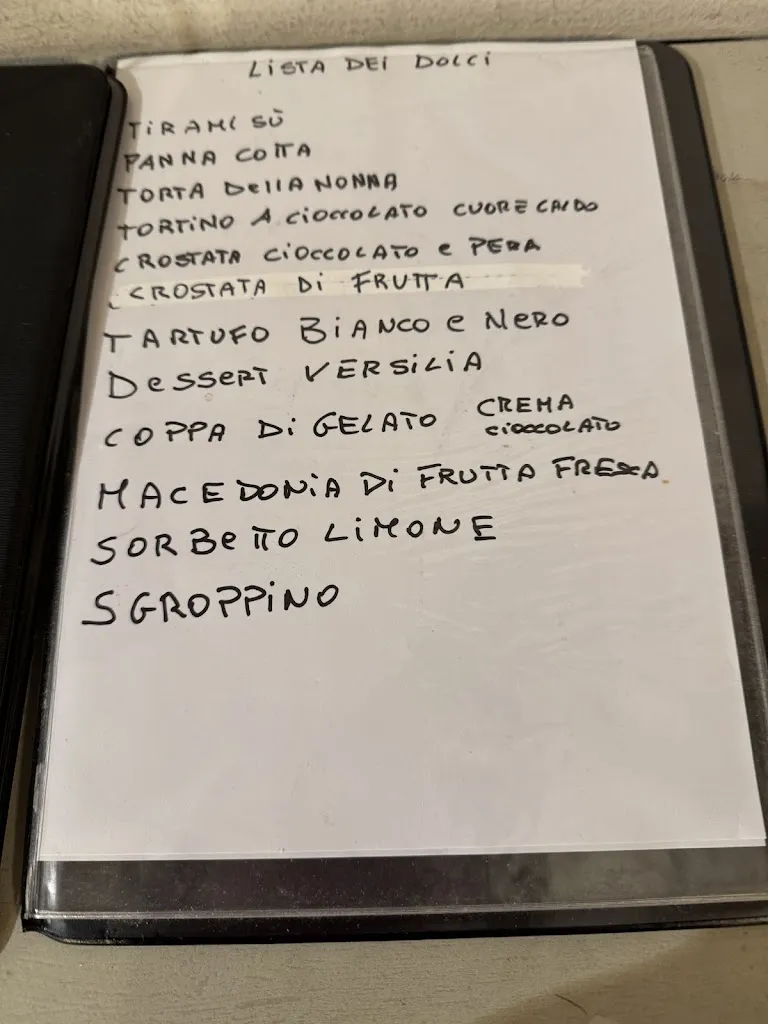 LISTA DEI DOLCI
TIRAMI SÙ
PANNA COTTA
TORTA DELLA NONNA
TORTINO A CIOCCOLATO CUORE CALDO
CROSTATA CIOCCOLATO e PERA
CROSTATA DI FRUTTA
TARTUFO BIANCO e NERO
DESSERT VERSILIA
COPPA DI GELATO CREMA
CIOCCOLATO
MACEDONIA DI FRUTTA FRESCA
SORBETTO LIMONE
SGROPPINO